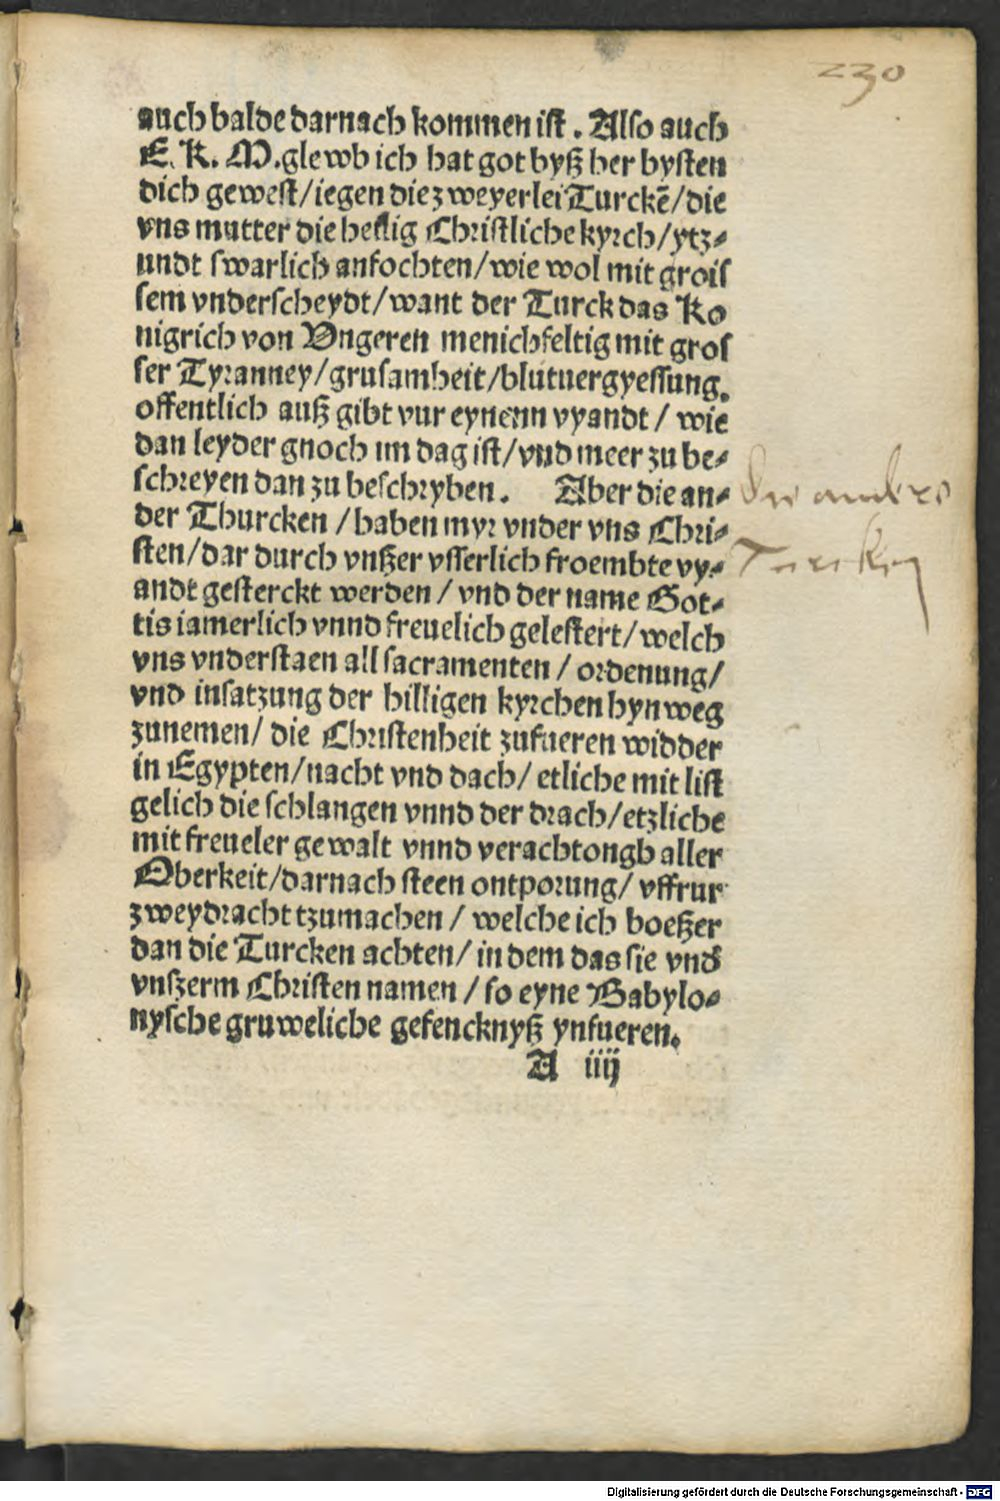 230
auch balde darnach kommen ist. Also auch
E. K. M. glewb ich hat got byß her bysten
dich gewest/iegen die zweyerlei Turckē/die
vns mutter die heilig Christliche kyrch/ytz⸗
undt swarlich anfochten/wie wol mit grois
sem vnderscheydt/want der Turck das Ko
nigrich von Vngeren menichfeltig mit gros
ser Tyranney/grusamheit/blutuergyessung.
offentlich auß gibt vur eynenn vyandt / wie
dan leyder gnoch im dag ist/vnd meer zu be⸗
schreyen dan zu beschryben. Aber die an⸗
der Thurcken /haben myr vnder vns Chri⸗
sten/dar durch vnßer vsserlich froembte vy⸗
andt gesterckt werden / vnd der name Got⸗
tis iamerlich vnnd freuelich gelestert/welch
vns vnderstaen all sacramenten / ordenung/
vnd insatzung der hilligen kyrchen hynweg
zunemen/ die Christenheit zufueren widder
in Egypten/nacht vnd dach/ etliche mit list
gelich die schlangen vnnd der drach/etzliche
mit freueler gewalt vnnd verachtongh aller
Oberkeit/darnach steen ontporung/ vffrur
zweydracht tzumachen / welche ich boeßer
dan die Turcken achten/ in dem das sie vnd
vnszerm Christen namen / so eyne Babylo⸗
nysche gruweliche gefencknyß ynfueren.
A iiij
die anders
Turcken
Digitalisierung gefördert durch die Deutsche Forschungsgemeinschaft - DFG